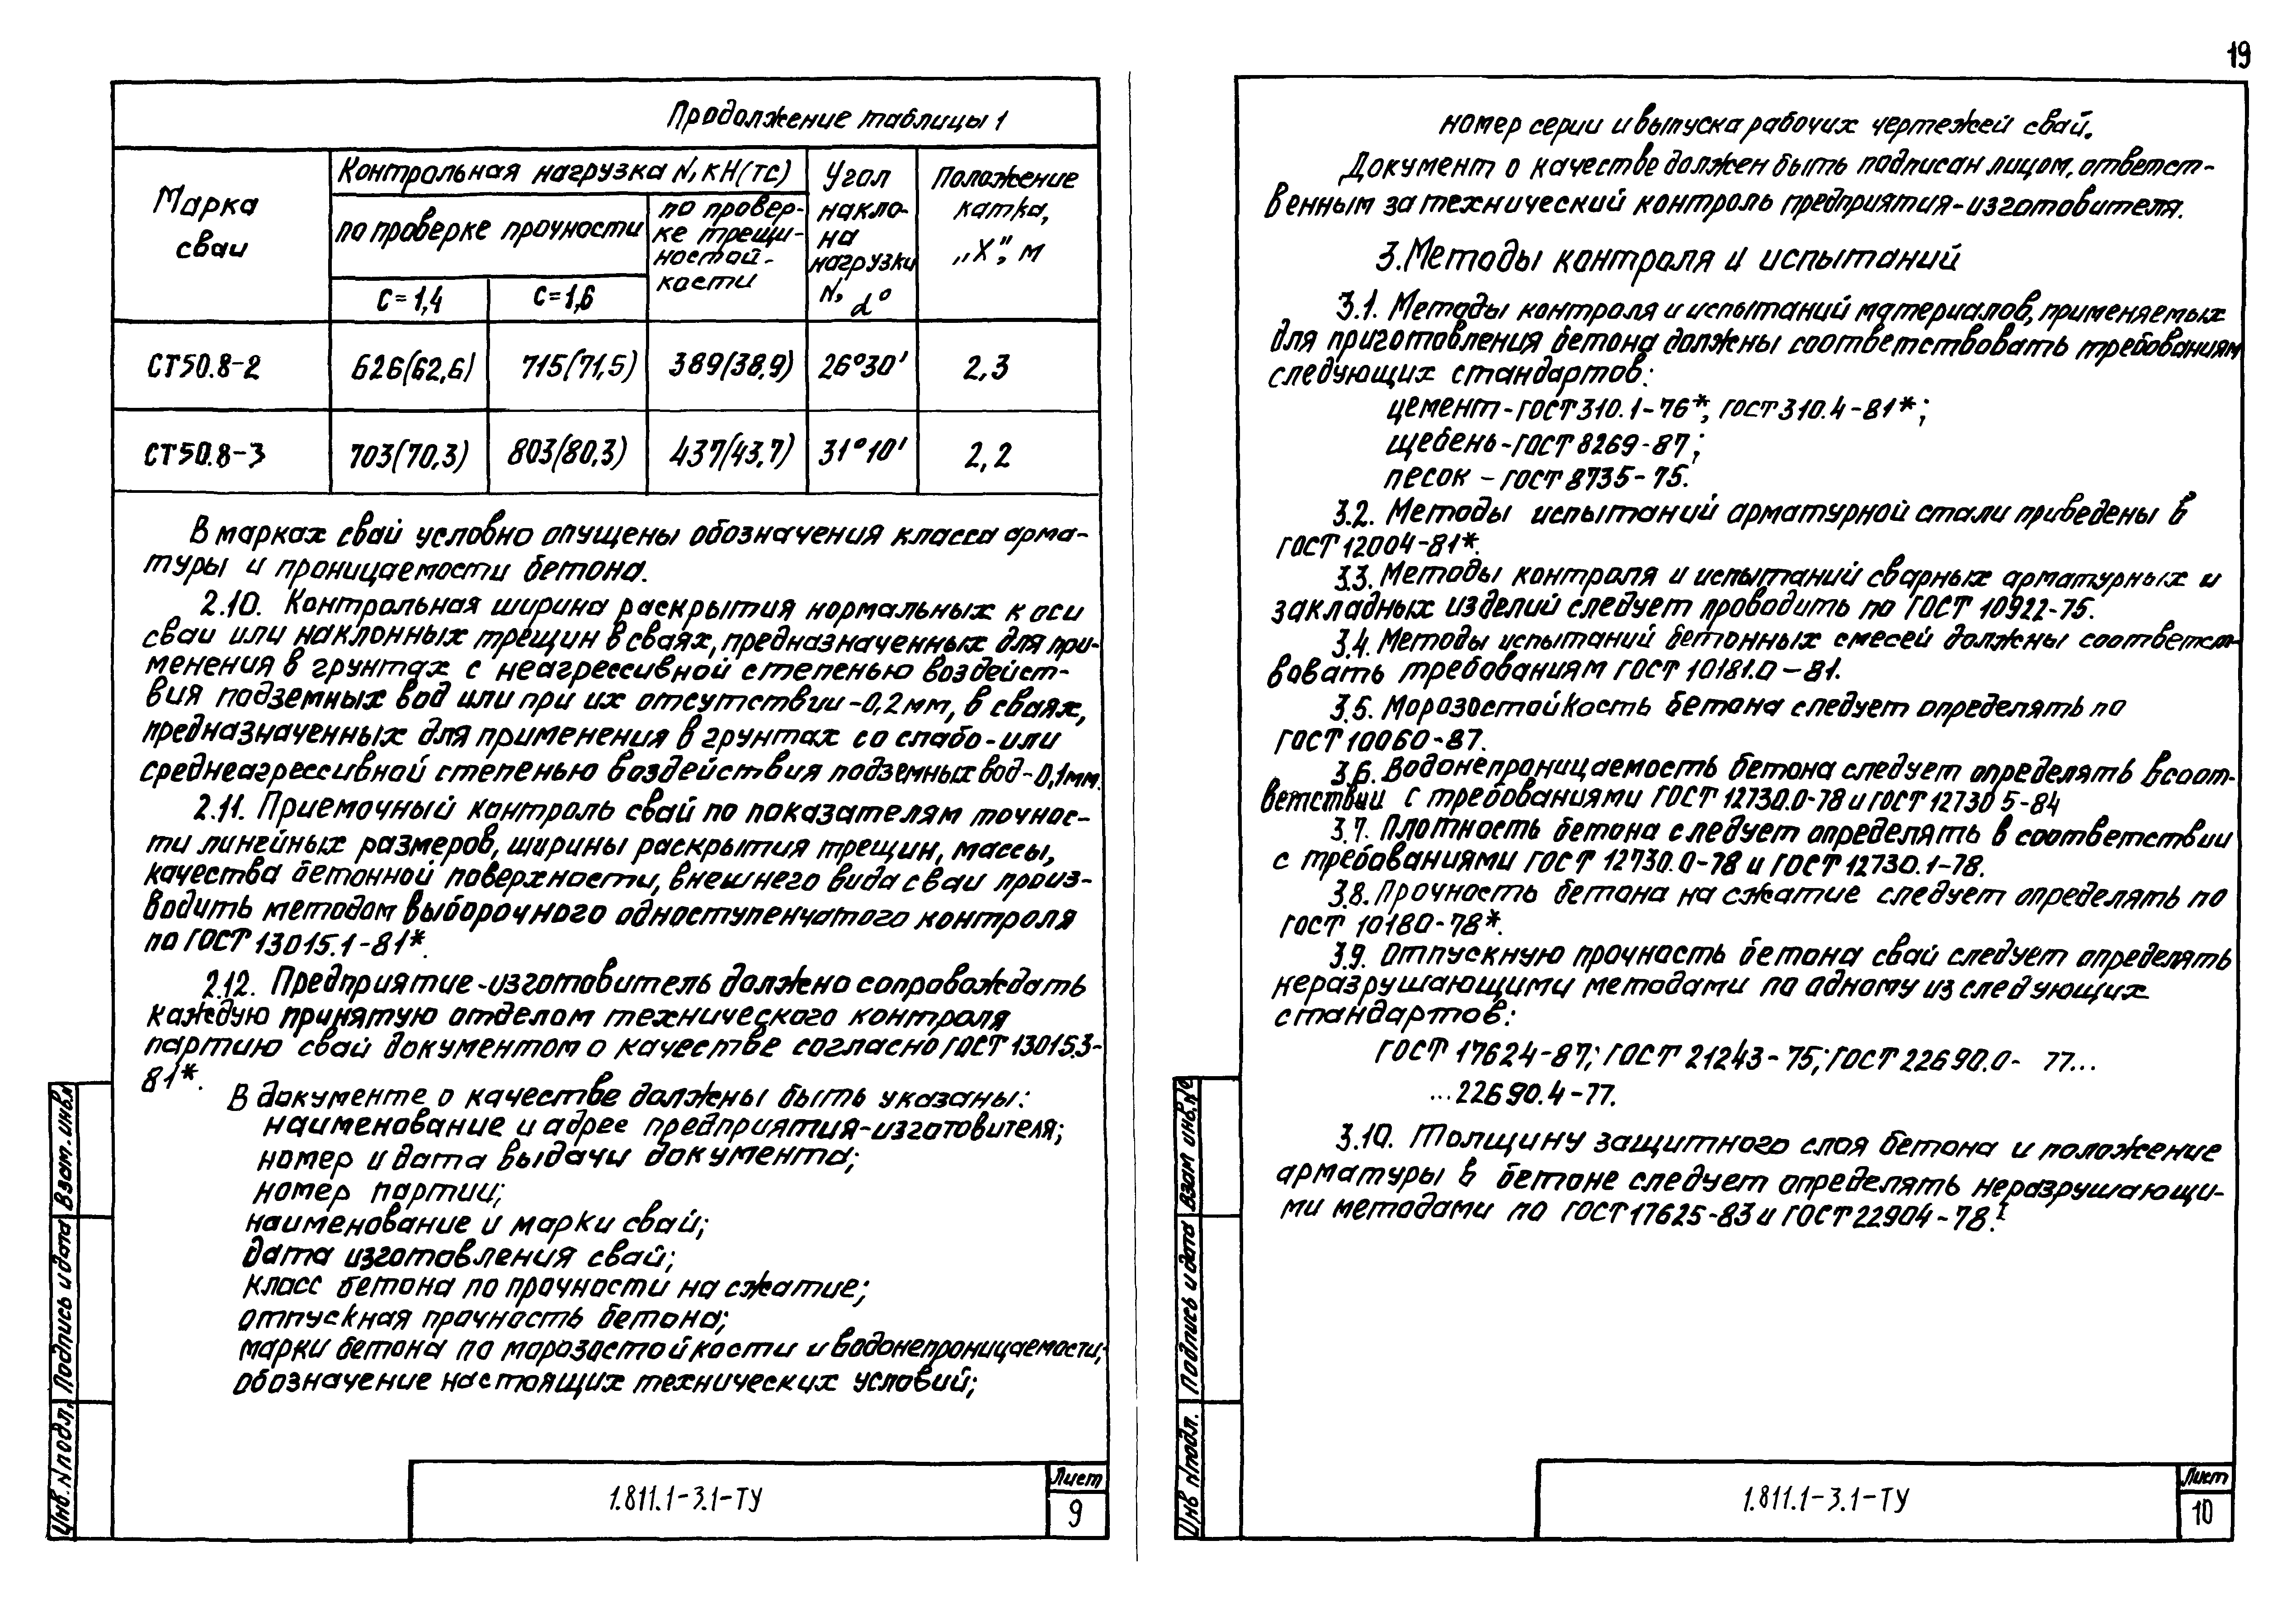 19
Продолжение таблицы 1
Марка сваи
Контрольная нагрузка N, кН(тс)
по проверке прочности
С=1,4
С=1,6
по провер-
ке трещи-
ностой-
кости
Угол
накло-
на
нагрузки
N, α°
Положение
катка,
„X", м
СТ50.8-2 626(62,6) 715(71,5) 389(38,9) 26°30' 2,3
СТ50.8-3 703(70,3) 803(80,3) 437(43,7) 31°10' 2,2
В марках свай условно опущены обозначения класса арма-
туры и проницаемости бетона.
2.10. Контрольная ширина раскрытия нормальных к оси
сваи или наклонных трещин в сваях, предназначенных для при-
менения в грунтах с неагрессивной степенью воздейст-
вия подземных вод или при их отсутствии -0,2мм, в сваях,
предназначенных для применения в грунтах со слабо-или
среднеагрессивной степенью воздействия подземных вод-0,1мм.
2.11. Приемочный контроль свай по показателям точнос-
ти линейных размеров, ширины раскрытия трещин, массы,
качества бетонной поверхности, внешнего вида сваи произ-
водить методом выборочного одноступенчатого контроля
по ГОСТ 13015.1-81*.
2.12. Предприятие-изготовитель должно сопровождать
каждую принятую отделом технического контроля
партию свай документом о качестве согласно ГОСТ 13015.3-
81*.
В документе о качестве должны быть указаны:
наименование и адрес предприятия-изготовителя;
номер и дата выдачи документа;
номер партии;
наименование и марки свай;
дата изготовления свай;
класс бетона по прочности на сжатие;
отпускная прочность бетона;
марки бетона по морозостойкости и водонепроницаемости;
обозначение настоящих технических условий;
Инв. N подл. Подпись и дата Взам. инв.N
1.811.1-3.1-ТУ
Лист
9
номер серии и выпуска рабочих чертежей свай.
Документ о качестве должен быть подписан лицом, ответст-
венным за технический контроль предприятия-изготовителя.
3. Методы контроля и испытаний
3.1. Методы контроля и испытаний материалов, применяемых
для приготовления бетона должны соответствовать требованиям
следующих стандартов:
цемент-ГОСТ 310.1-76*, ГОСТ 310.4-81*;
щебень-ГОСТ 8269-87;
песок - ГОСТ 8735-75.
3.2. Методы испытаний арматурной стали приведены в
ГОСТ 12004-81*.
3.3. Методы контроля и испытаний сварных арматурных и
закладных изделий следует проводить по ГОСТ 10922-75.
3.4. Методы испытаний бетонных смесей должны соответст-
вовать требованиям ГОСТ 10181.0-81.
3.5. Морозостойкость бетона следует определять по
ГОСТ 10060-87.
3.6. Водонепроницаемость бетона следует определять в соот-
ветствии с требованиями ГОСТ 12730.0-78 и ГОСТ 12730 5-84
3.7. Плотность бетона следует определять в соответствии
с требованиями ГОСТ 12730.0-78 и ГОСТ 12730.1-78.
3.8. Прочность бетона на сжатие следует определять по
ГОСТ 10180-78*.
3.9. Отпускную прочность бетона свай следует определять
неразрушающими методами по одному из следующих
стандартов:
ГОСТ 17624-87; ГОСТ 21243-75; ГОСТ 22690.0- 77...
...22690.4-77.
3.10. Толщину защитного слоя бетона и положение
арматуры в бетоне следует определять неразрушающи-
ми методами по ГОСТ 17625-83 и ГОСТ 22904-78.
Инв N подл. Подпись и дата Взам инв.N
1.811.1-3.1-ТУ
Лист
10